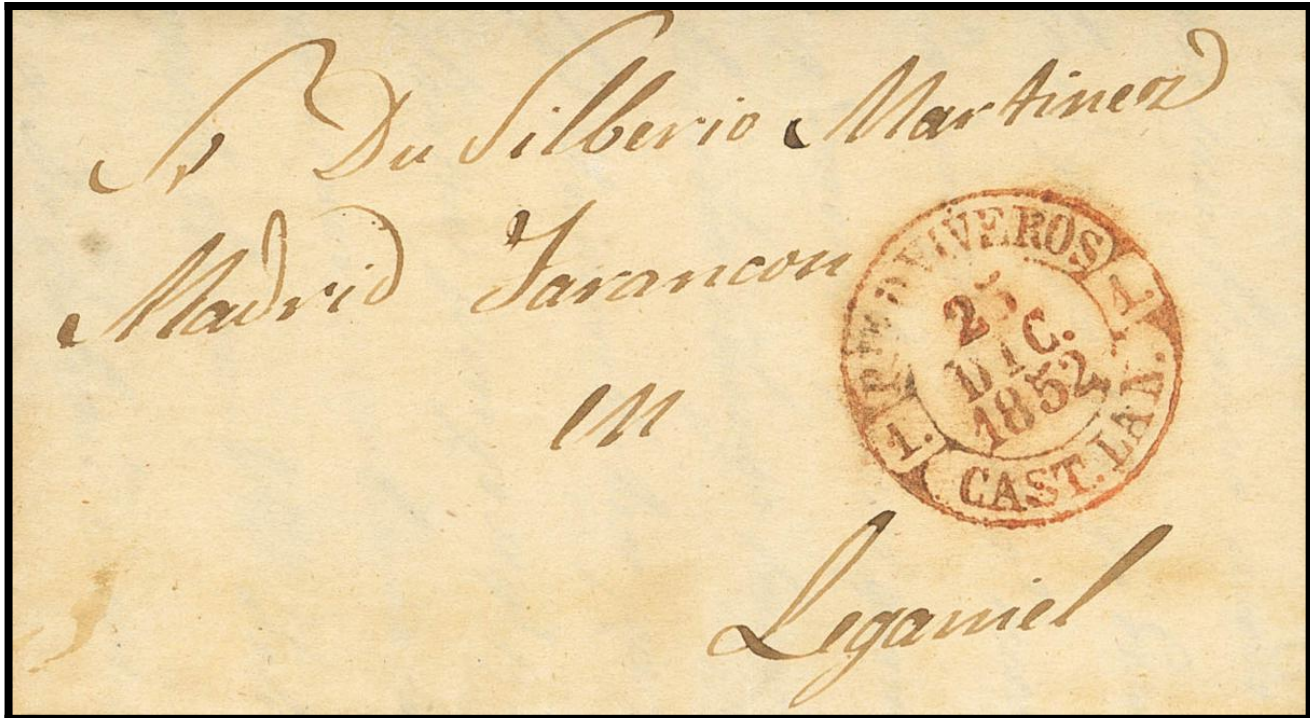 Sr Dn Silberio Martinez
Madrid Tarancon
en
Leganiel
PTE D VIVEROS
1.
25
DIC.
1852
1.
CAST. LA N.